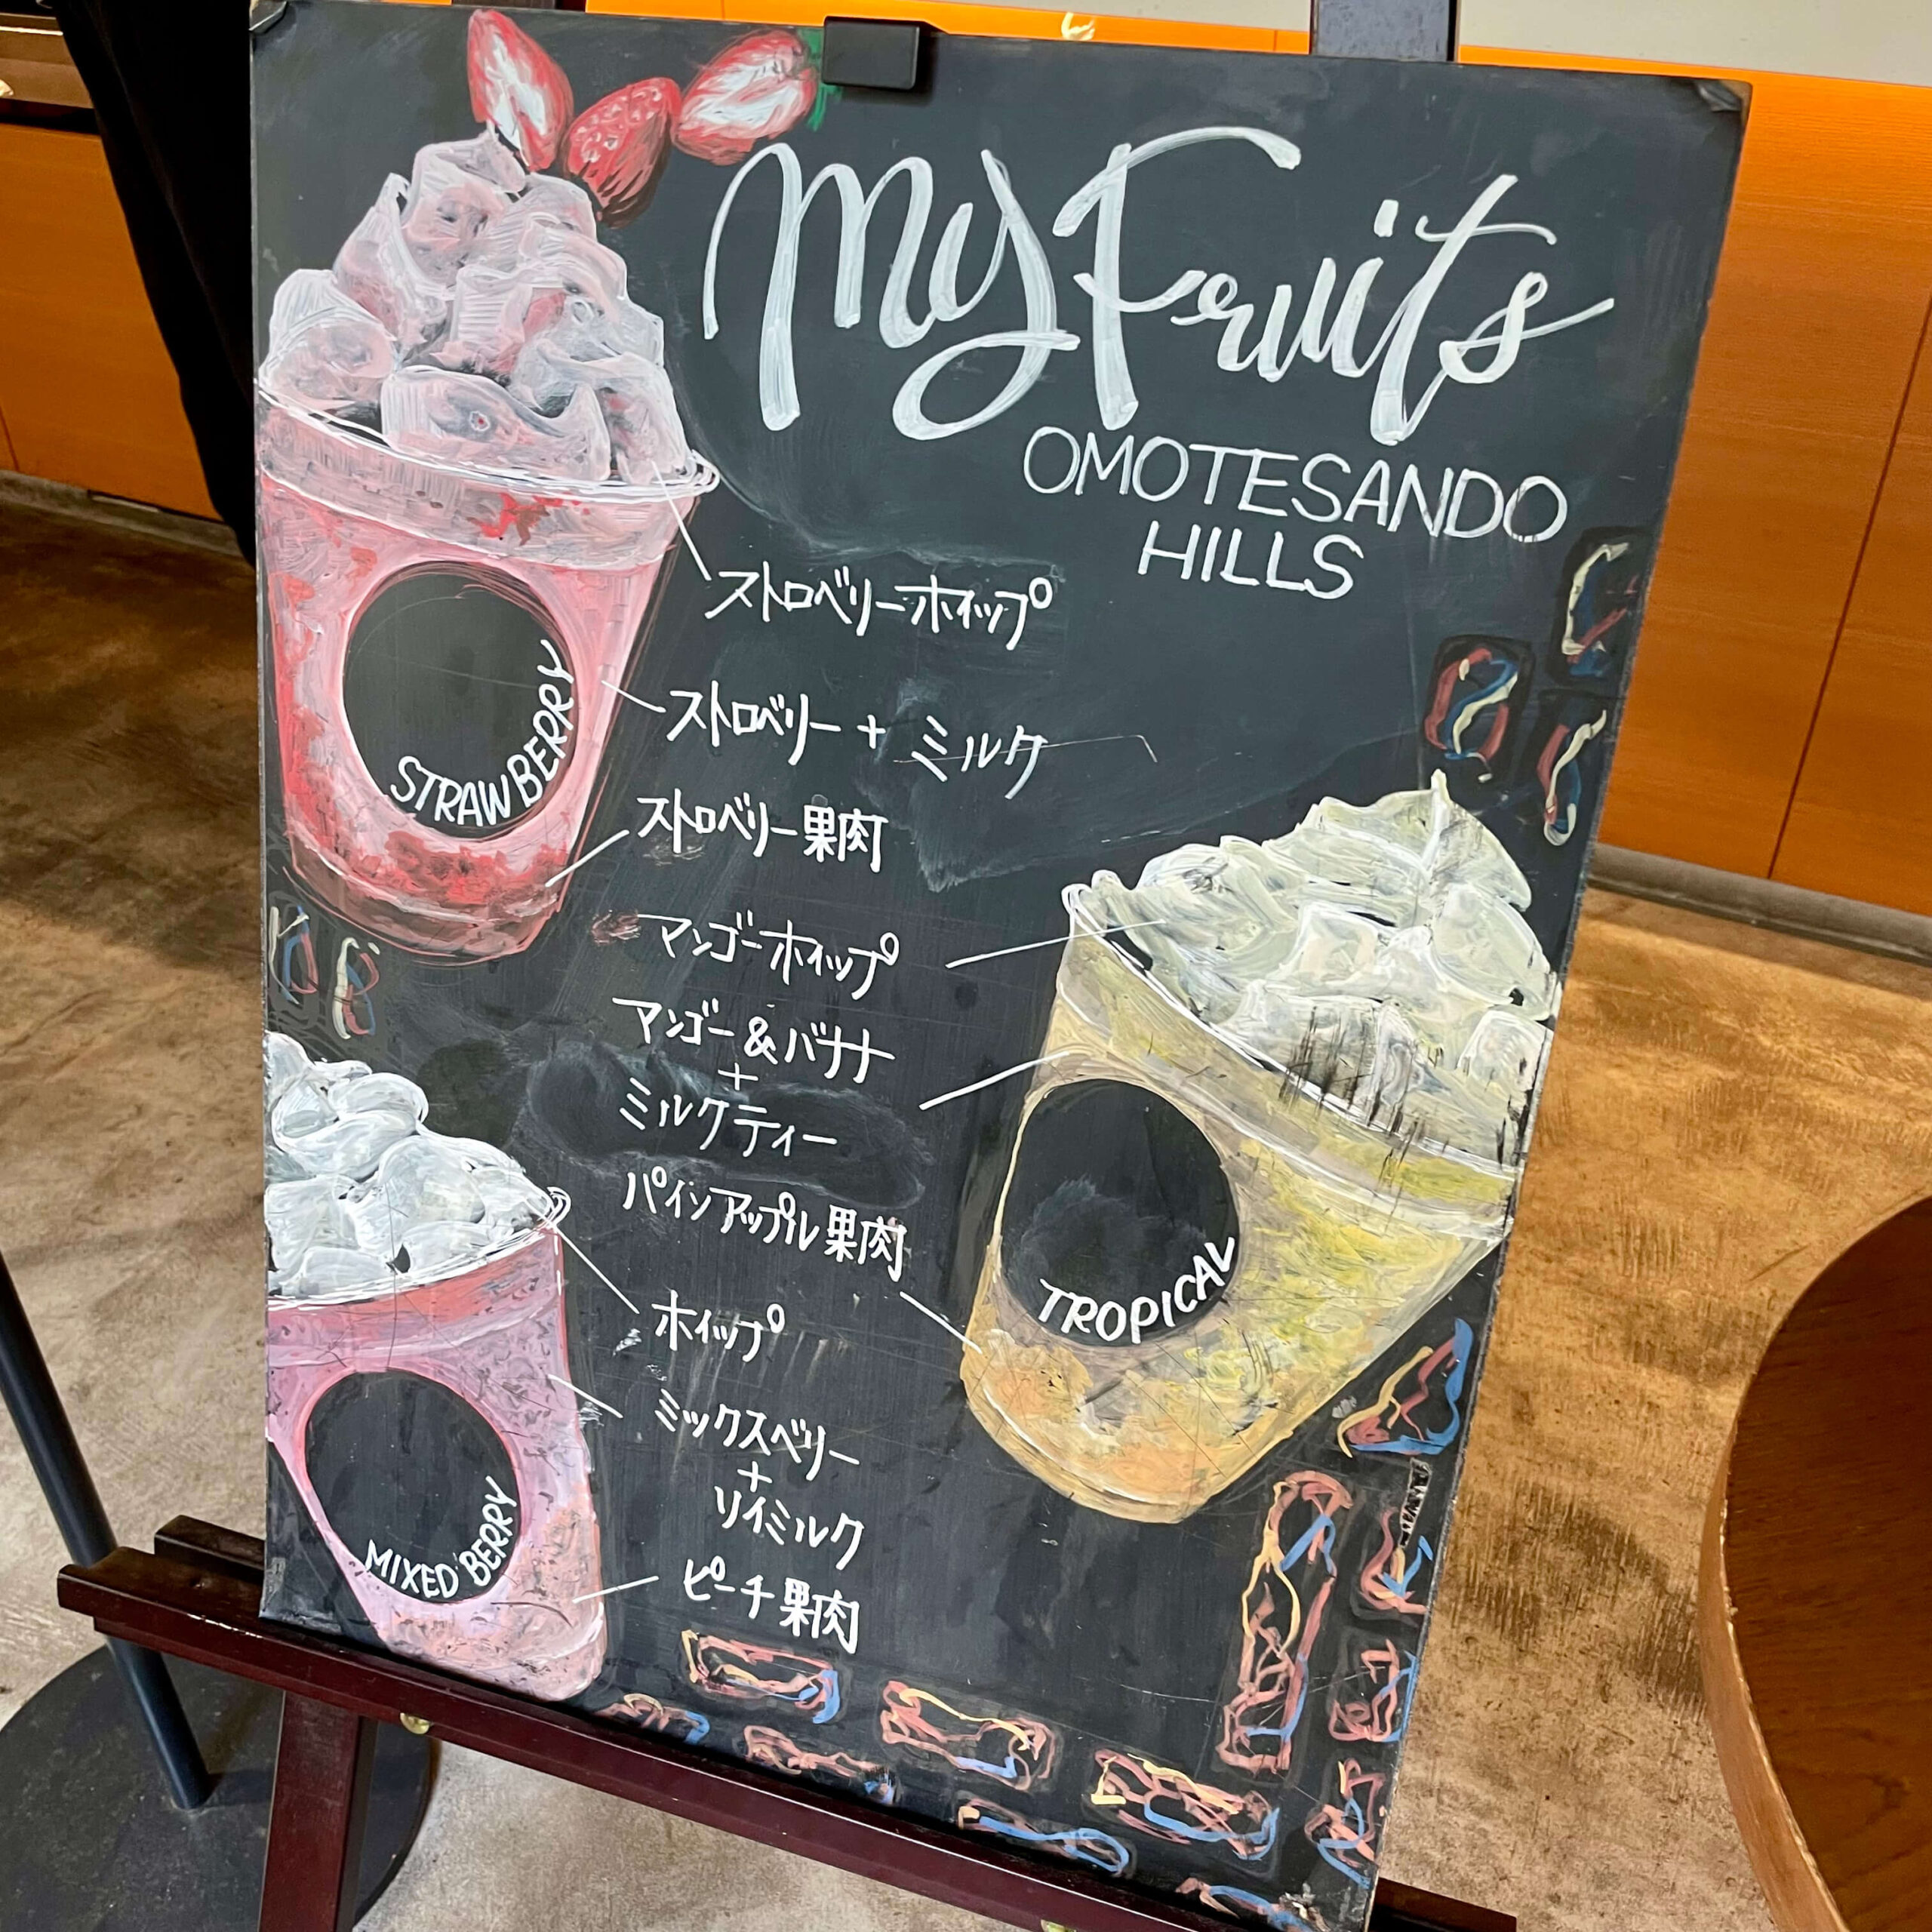 My Fruits
OMOTESANDO
HILLS
ストロベリーホイップ
ストロベリー + ミルク
ストロベリー果肉
STRAWBERRY
マンゴーホイップ
マンゴー&バナナ
+
ミルクティー
パインアップル果肉
TROPICAL
ホイップ
ミックスベリー
+
ソイミルク
ピーチ果肉
MIXED BERRY